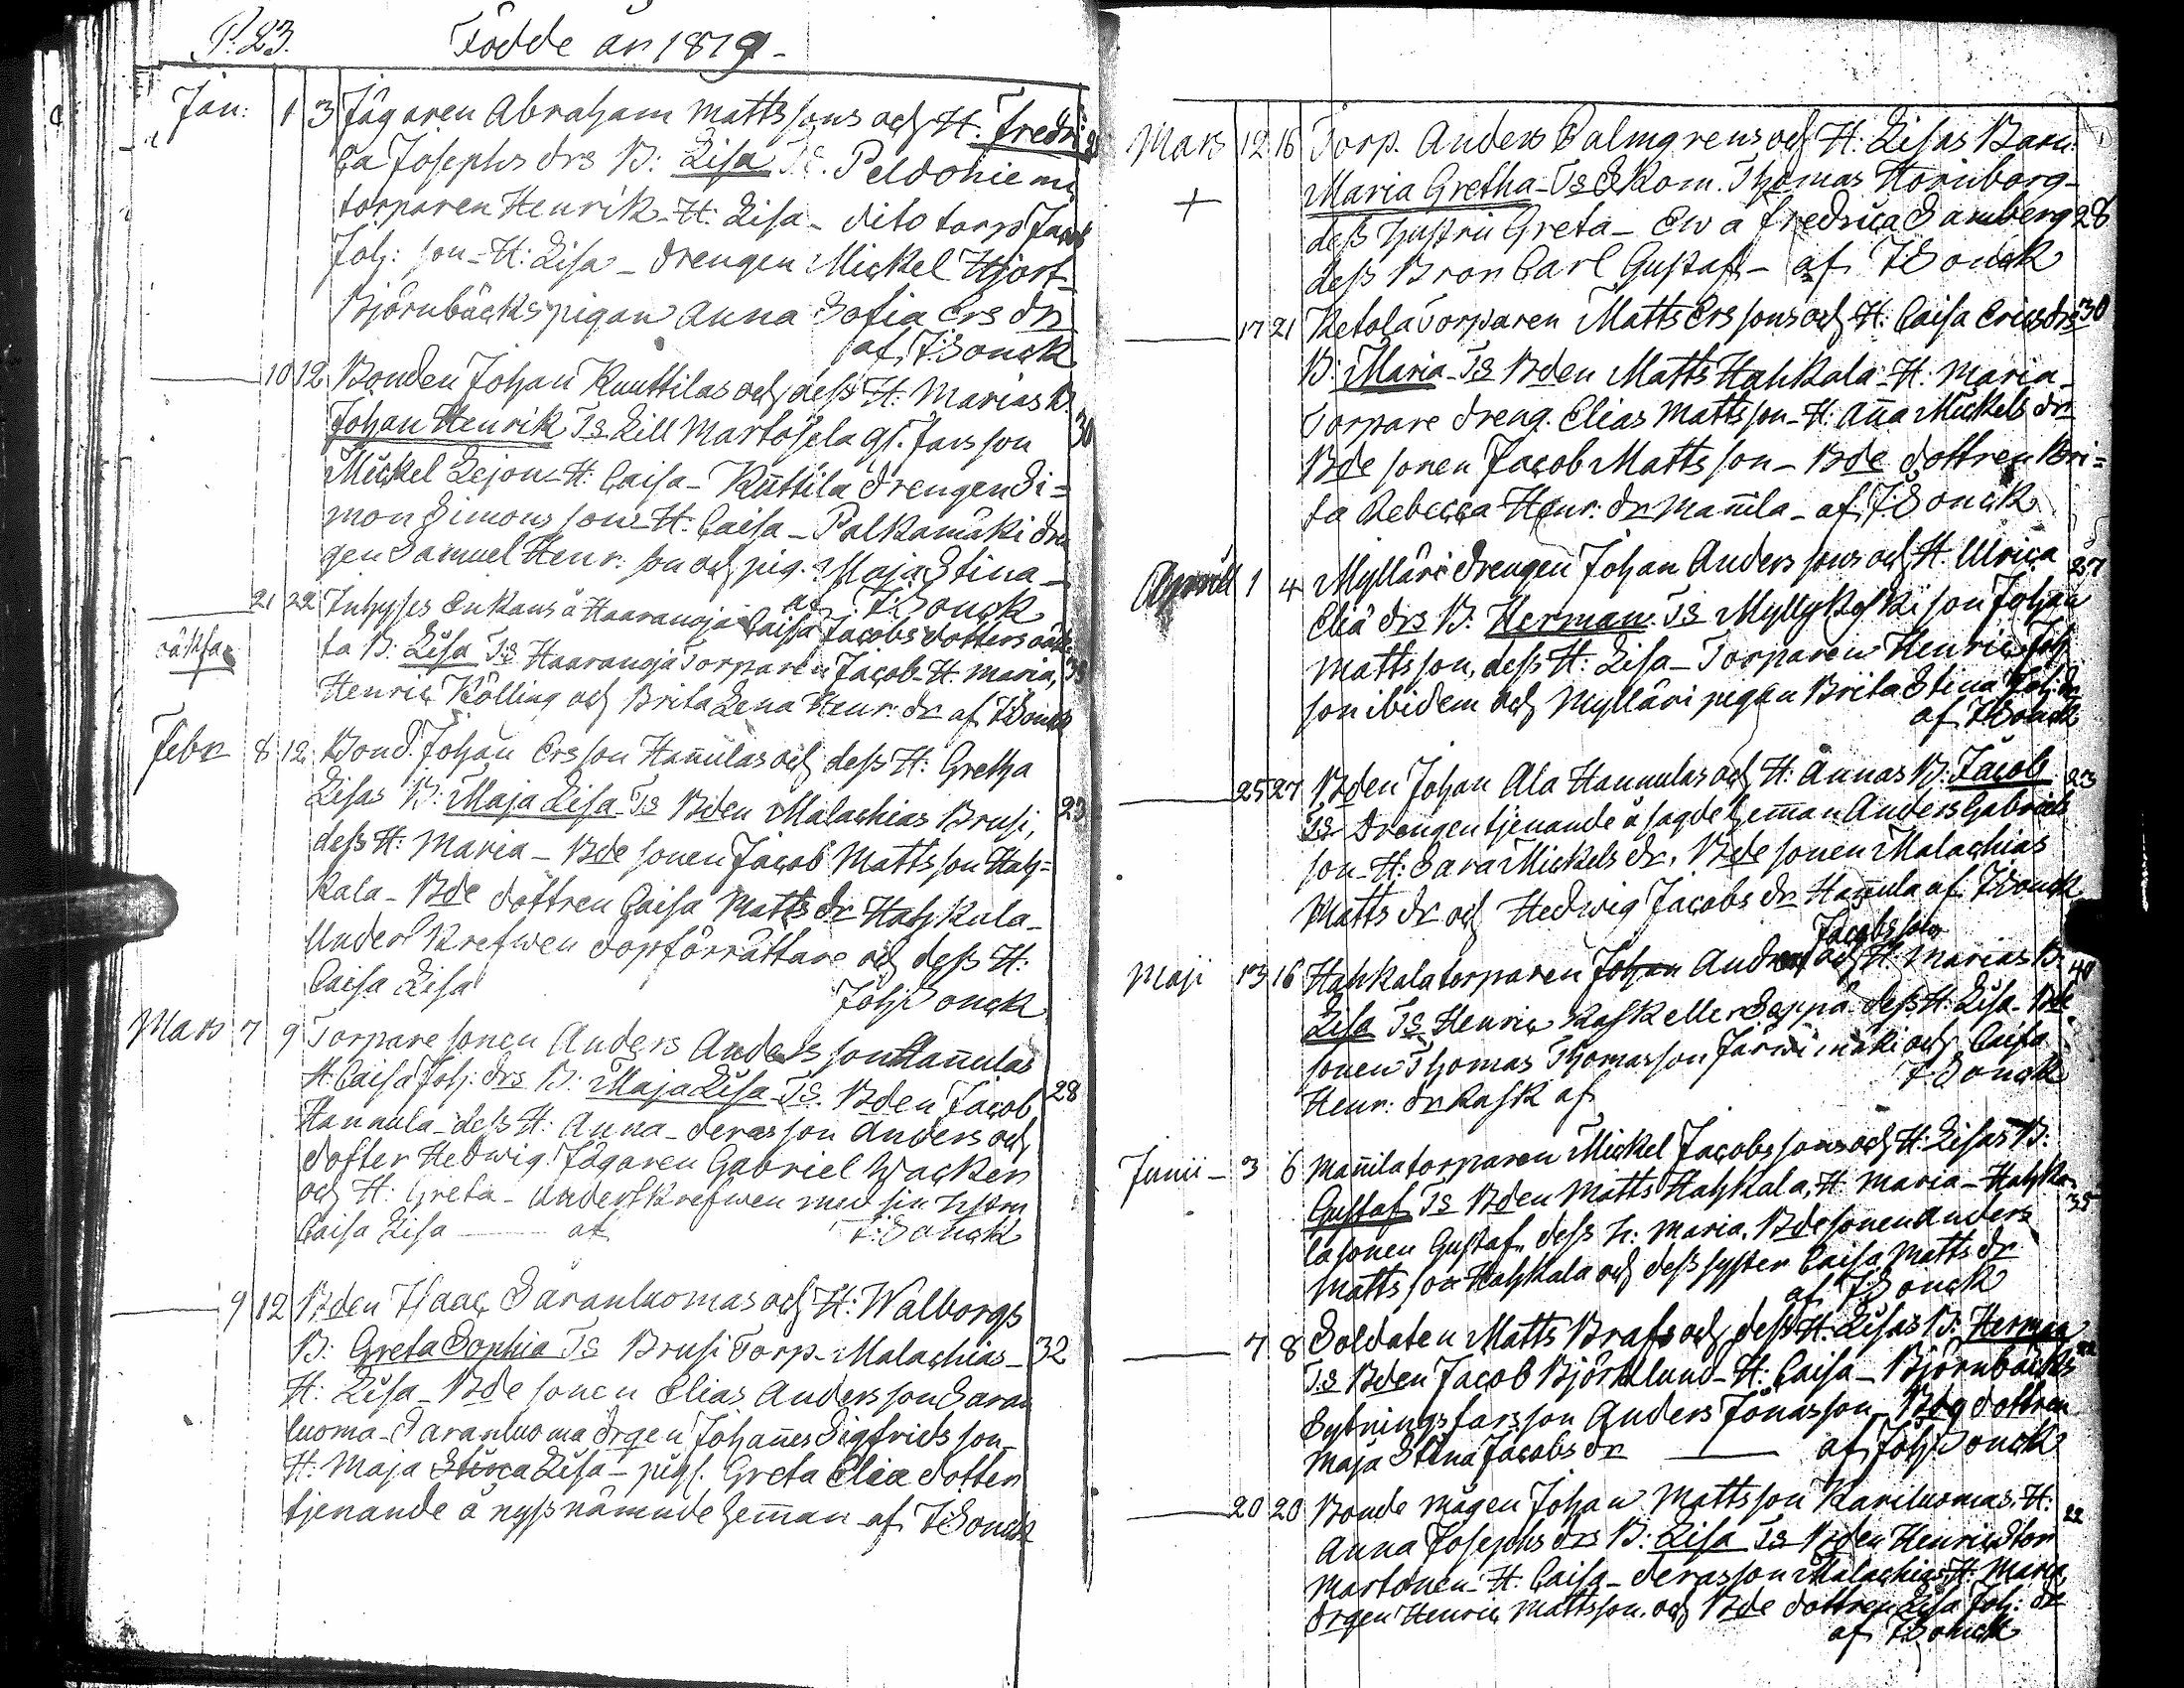 P. 23. Födde år 1819 -
Jan: 1 3 Jägaren Abraham Mattssons och H. Fredri
ca Josephs drs B: Lisa Ts. Peldoniemi
torparen Henrik - H: Lisa - dito torp Jacob
Joh: son - H: Lisa - drengen Mickel Hjort -
Björnbäcks pigan Anna Sofia Ers dr
af J: Sonck
10 12 Bonden Johan Kuuttilas och dess H: Marias B. 30
Johan Henrik Ts. Lill Martosela gl. fars son
Mickel Lejon - H: Caisa - Kuttila drengen Si=
mon Simons son - H: Caisa - Palkamäki dren
gen Samuel Henr: son och pig. Maja Stina -
af J: Sonck
21 22 Inhyses Enkans å Haaranoja Caisa Jacobs dotters oäk
oäkta
ta B: Lisa Ts Haaranoja Torparen Jacob - H. Maria,
Henric Kölling och Brita Lena Henr: dr af J: Sonck
Febr 8 12 Bond. Johan Ersson Hannulas och dess H: Gretha
Lisas B: Maja Lisa Ts Bden Malachias Brusi, 23
dess H: Maria - Bde sonen Jacob Matts son Hah=
kala - Bde dottren Caisa Matts dr Hahkala -
Underskrefwen dopförrättare och dess H:
Caisa Lisa Joh Sonck
Mars 7 9 Torpare sonen Anders Anders son Hannulas
H: Caisa Joh: drs B: Maja Lisa Ts. Bden Jacob 28
Hannula - dess H: Anna - deras son Anders och
dotter Hedwig. Jägaren Gabriel Wacker
och H: Greta - Underskrefwen med sin hstru
Caisa Lisa af J: Sonck
9 12 Bden Isaac Saranluomas och H: Walborgs
B: Greta Sophia Ts Brusi Torp. Malachias - 32
H: Lisa - Bde sonen Elias Andersson Saran
luoma - Saranluoma drgen Johannes Sigfrids son -
H: Maja Stina Lisa - pigs. Greta Elia dotter
tjenande å nyss nämnde hemman af J: Sonck
Mars 12 16 Torp. Anders Palmgrens och H: Lisas Barn:
Maria Gretha - Ts Skom. Thomas Hörnborg -
dess hustru Greta - Ewa Fredrica Samberg 28
dess Bror Carl Gustaf - af J: Sonck
17 21 Ketola Torparen Matts Ers sons och H: Caisa Erics drs 30
B: Maria - Ts Bden Matts Hahkala - H: Maria -
Torpare dreng. Elias Matts son - H: Anna Mickels dr
Bde sonen Jacob Matts son - Bde dottren Bri=
ta Rebecca Henr: dr Mannila - af J: Sonck
Aprill 1 4 Mylläri drengen Johan Anders sons och H: Ulrica 27
Elia drs B: Herman. Ts Myllykoski son Johan
Matts son, dess H: Lisa - Torparen Henric Joh
son ibidem och Mylläri pigan Brita Stina Joh: dr
af J: Sonck
25 27 Bden Johan Ala Hannulas och H: Annas B: Jacob 23
Ts Drengen tjenande å sagde hemman Anders Gabriels
son - H: Sara Mickels dr, Bde sonen Malachias
Matts dr och Hedwig Jacobs dr Hannula af J: Sonck
Jacobs sons
Maji 13 16 Hahkala torparen Johan Anders och H: Marias B: 40
Lisa Ts Henric Rask eller Seppä dess H: Lisa - Bde
sonen Thomas Thomasson Järwimäki och Caisa
Henr: dr Rask af J: Sonck
Junii - 3 6 Mannila torparen Mickel Jacobs sons och H: Lisas B:
Gustaf Ts Bden Matts Hahkala, H: Maria - Hahka- 35
la sonen Gustaf, dess h: Maria, Bde sonen Anders
Matts son Hahkala och dess syster Caisa Matts dr
af J: Sonck
7 8 Soldaten Matts Brafs och dess H: Lisas B: Herman
Ts Bden Jacob Björklund - H: Caisa - Björnbäcks
Sytnings fars son Anders Jonasson - Bde dottren
Maja Stina Jacobs dr af Joh: Sonck
20 20 Bonde mågen Johan Matts son Kariluomas, H: 22
Anna Josephs drs B: Lisa Ts Bden Henric Stor
Martonen - H: Caisa - deras son Malachias, H: Maria,
drgen Henric Mattsson, och Bde dottren Lisa Joh: dr
af J: Sonck